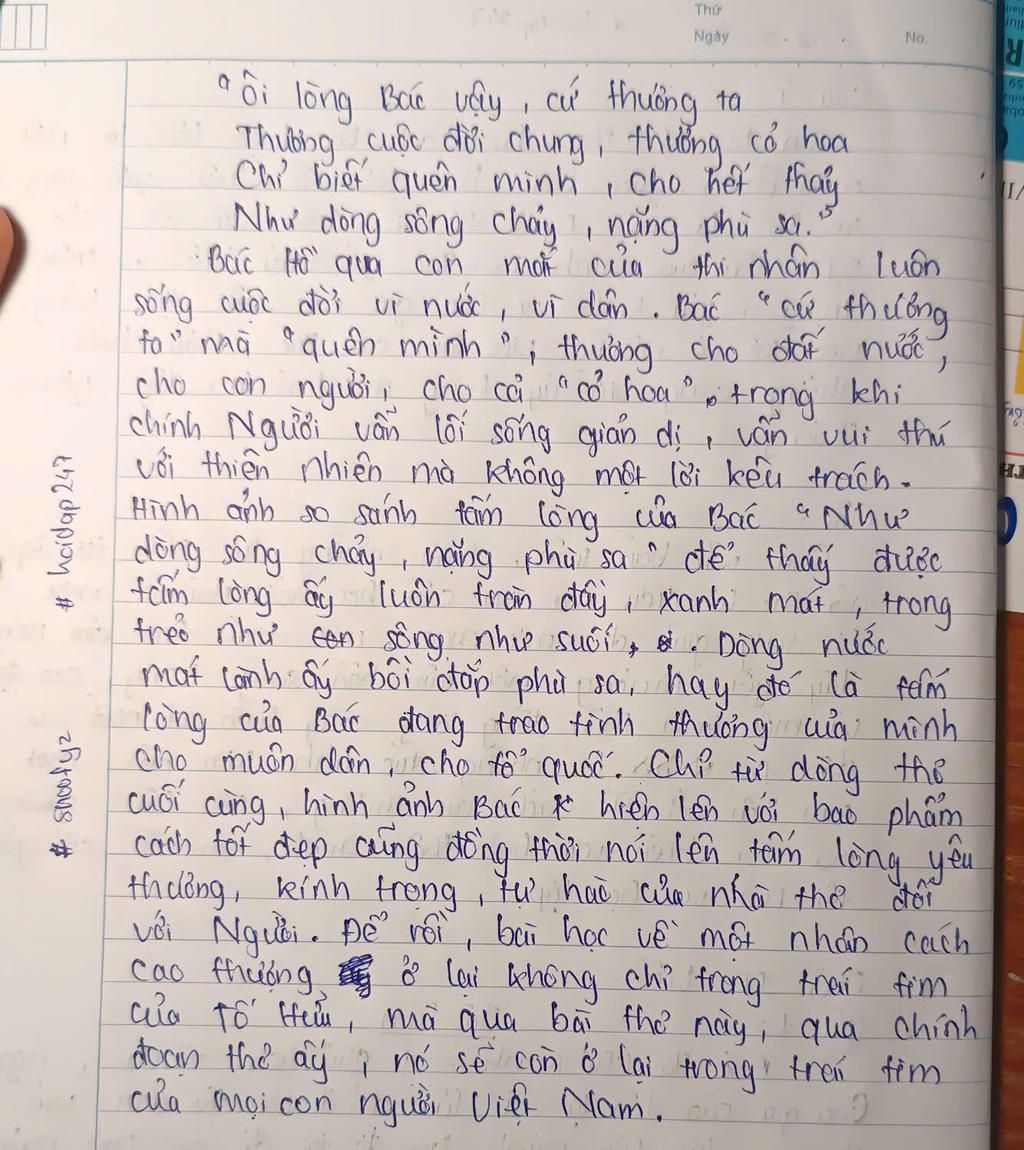 Thứ
Ngày
No.
"Ôi lòng Bác vậy, cứ thương ta
Thương cuộc đời chung, thương cỏ hoa
Chỉ biết quên mình, cho hết thảy
Như dòng sông chảy, nặng phù sa."
Bác Hồ qua con mắt của thi nhân luôn
sống cuộc đời vì nước, vì dân. Bác "cứ thương
ta" mà "quên mình", thương cho đất nước,
cho con người, cho cả "cỏ hoa", trong khi
chính Người vẫn lối sống giản dị, vẫn vui thú
với thiên nhiên mà không một lời kêu trách.
Hình ảnh so sánh tấm lòng của Bác "Như
dòng sông chảy, nặng phù sa" để thấy được
tấm lòng ấy luôn tràn đầy, xanh mát, trong
trẻo như sông như suối. Dòng nước
mát lành ấy bồi đắp phù sa, hay đó là tấm
lòng của Bác đang trao tình thương của mình
cho muôn dân, cho tổ quốc. Chỉ từ dòng thơ
cuối cùng, hình ảnh Bác hiện lên với bao phẩm
cách tốt đẹp cũng đồng thời nói lên tấm lòng yêu
thương, kính trọng, tự hào của nhà thơ đối
với Người. Để rồi, bài học về một nhân cách
cao thượng ở lại không chỉ trong trái tim
của Tố Hữu, mà qua bài thơ này, qua chính
đoạn thơ ấy, nó sẽ còn ở lại trong trái tim
của mọi con người Việt Nam.
# hoidap247
# snootyz